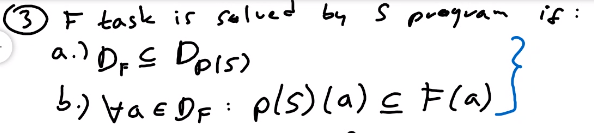 ③ F task is solved by S program if:
a.) D_F ⊆ D_p(S)
b.) ∀a ∈ D_F : p(S)(a) ⊆ F(a)